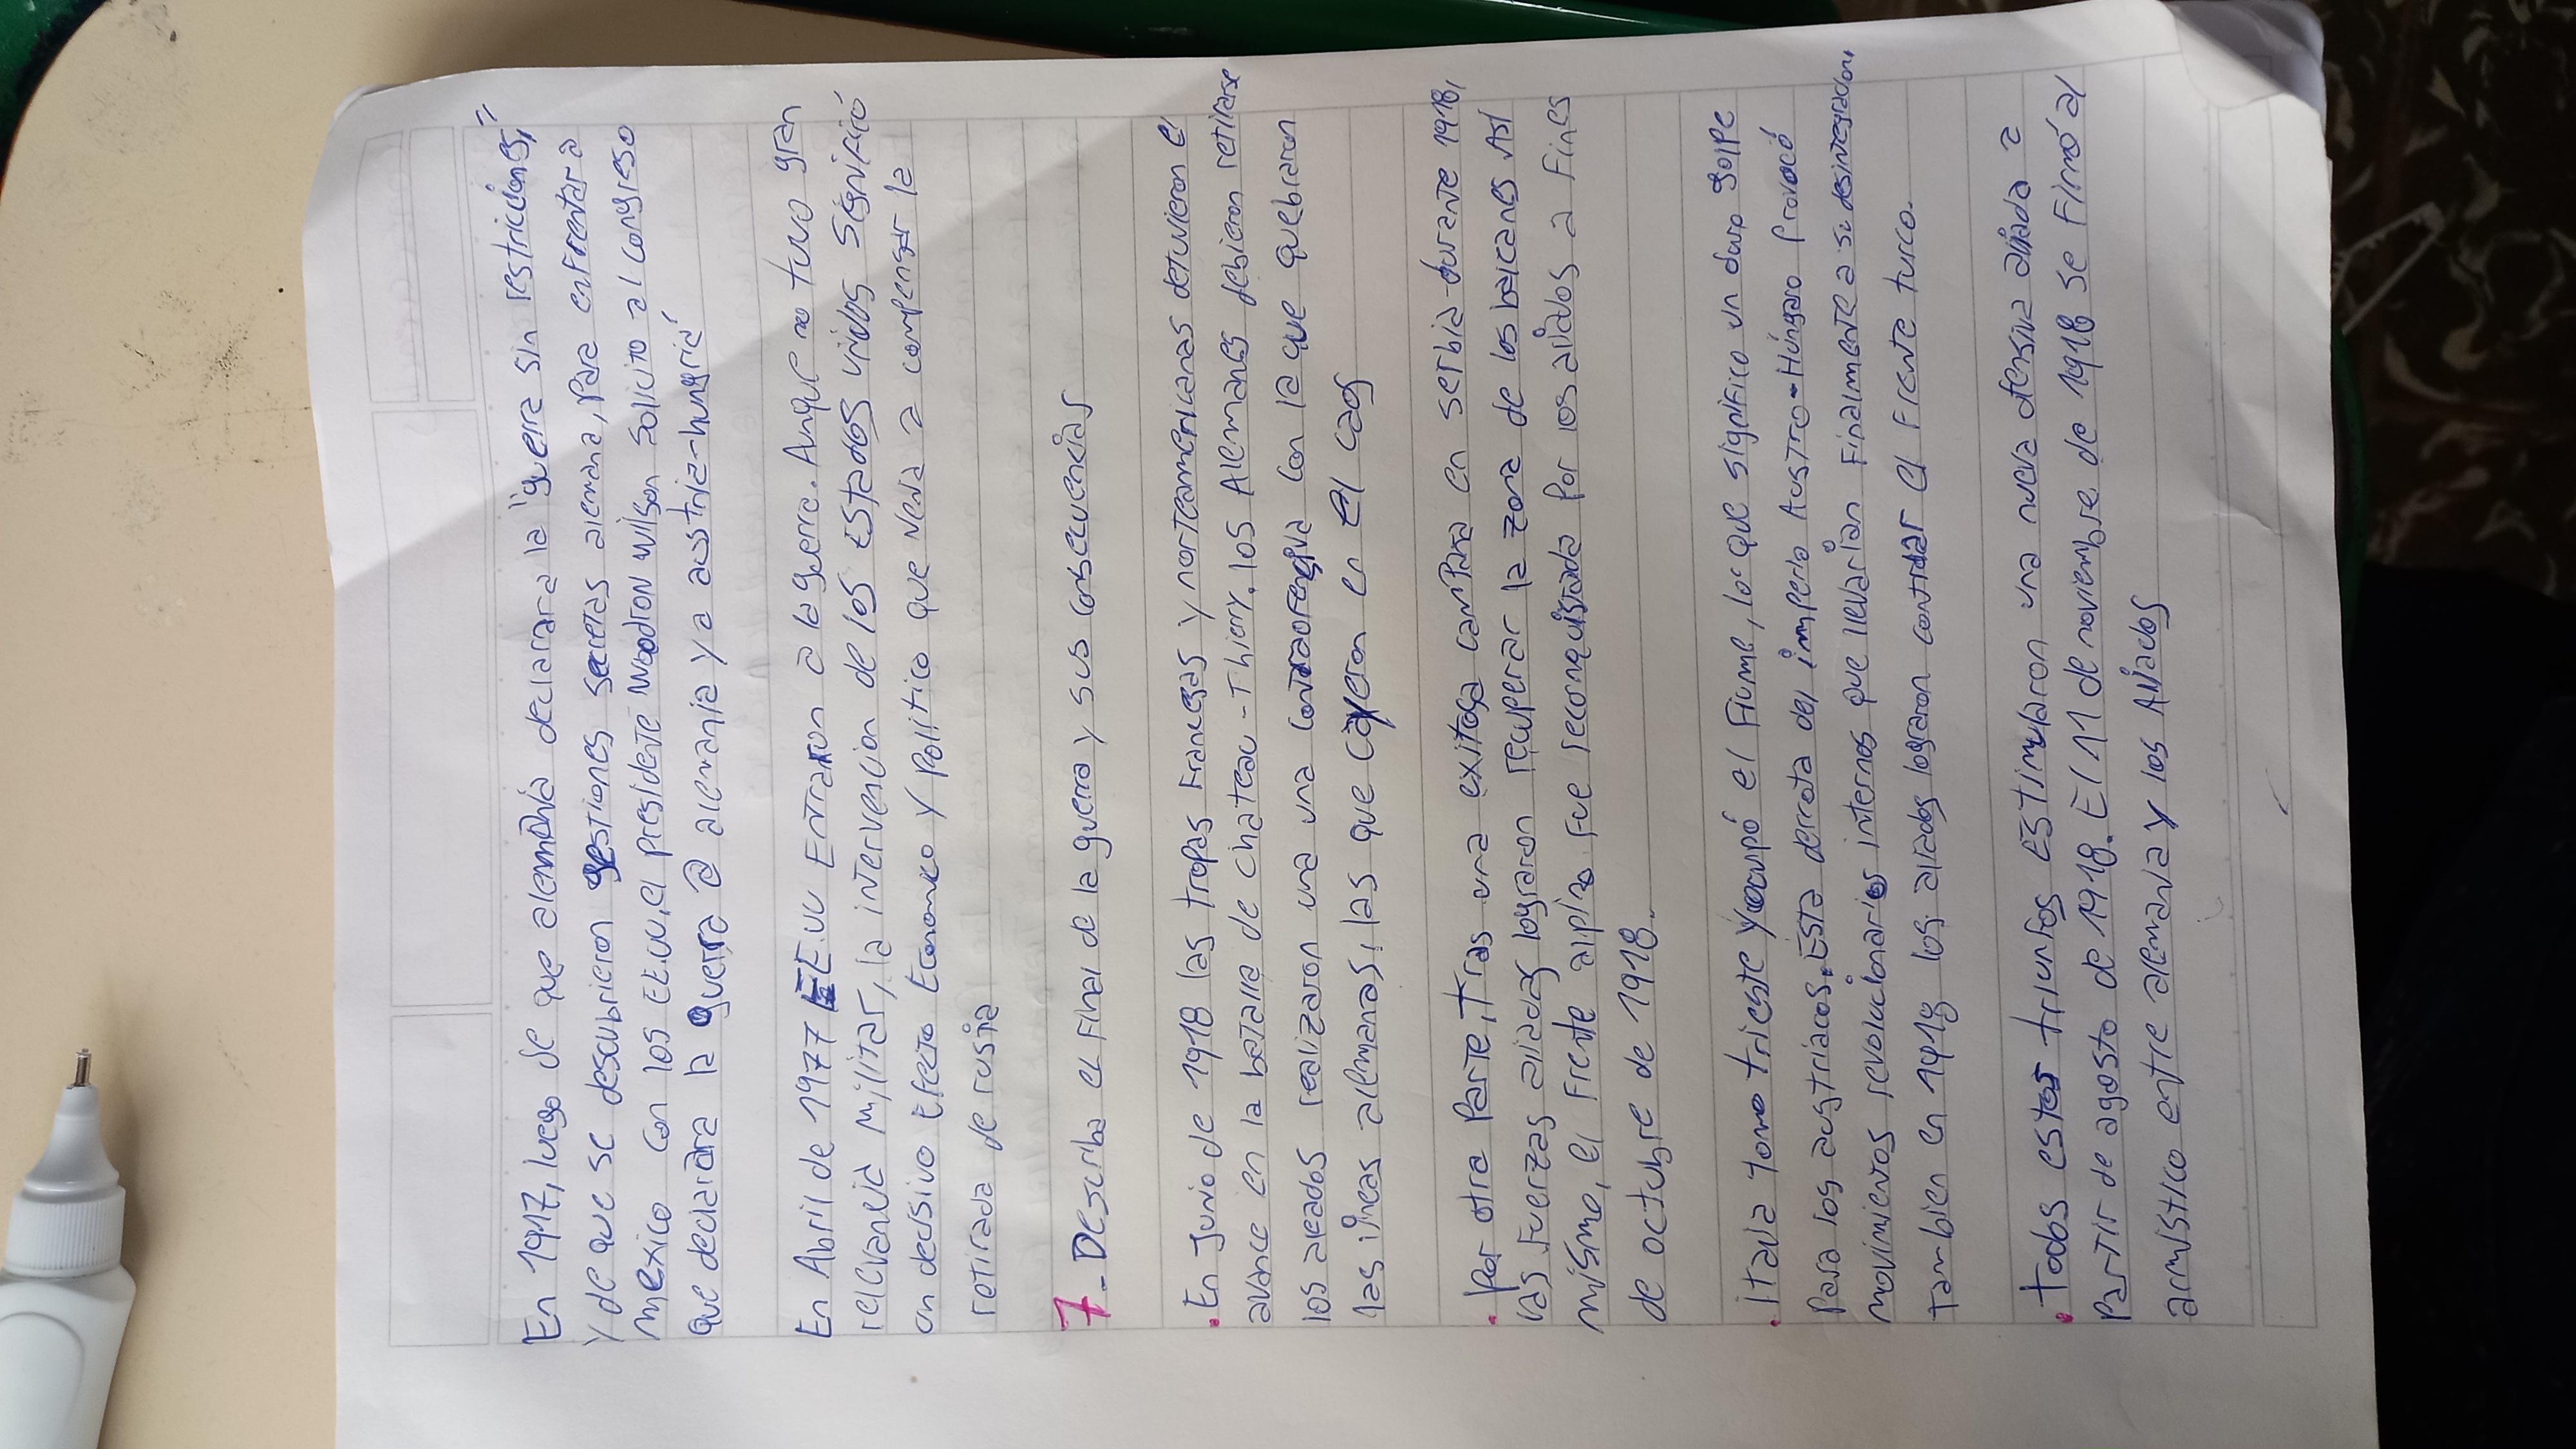 En 1917, luego de que alemania declarara la "guerra sin restricciones,"
y de que se descubrieron gestiones secretas alemana, para enfrentar a
mexico con los EE.UU, el presidente Woodron wilson solicito al congreso
que declarara la guerra @ alemania y a austria-hungria
En Abril de 1977 EE.UU Entraron a la guerra. Aunque no tuvo gran
relevancia militar, la intervencion de los Estados unidos significó
un decisivo Efecto Economico y Politico que venia a compensar la
retirada de rusia
7- Describa el final de la guerra y sus consecuencias
. En Junio de 1918 las tropas Francesas y norteamericanas detuvieron el
avance en la batalla de chateau - Thierry. los Alemanes debieron retirarse
los aleados realizaron una contraofensiva con la que quebraron
las lineas alemanas, las que cayeron en el caos
. por otra Parte, tras una exitosa campaña en serbia durante 1918,
las fuerzas aliadas lograron recuperar la zona de los balcanes Así
mismo, el frente alpino fue reconquistada por los aliados a Fines
de octubre de 1918.
. italia tomo trieste y ocupó el Fiume, lo que significo un duro golpe
para los austriacos. Esta derrota del imperio Austro-Húngaro Provocó
movimientos revolucionarios internos que llevarian Finalmente a su desintegracion,
tambien en 1918 los aliados lograron controlar el Frente turco.
. todos estos triunfos estimularon una nueva ofensiva aliada a
partir de agosto de 1918. El 11 de noviembre de 1918 se Firmó al
armistico entre alemania y los Aliados